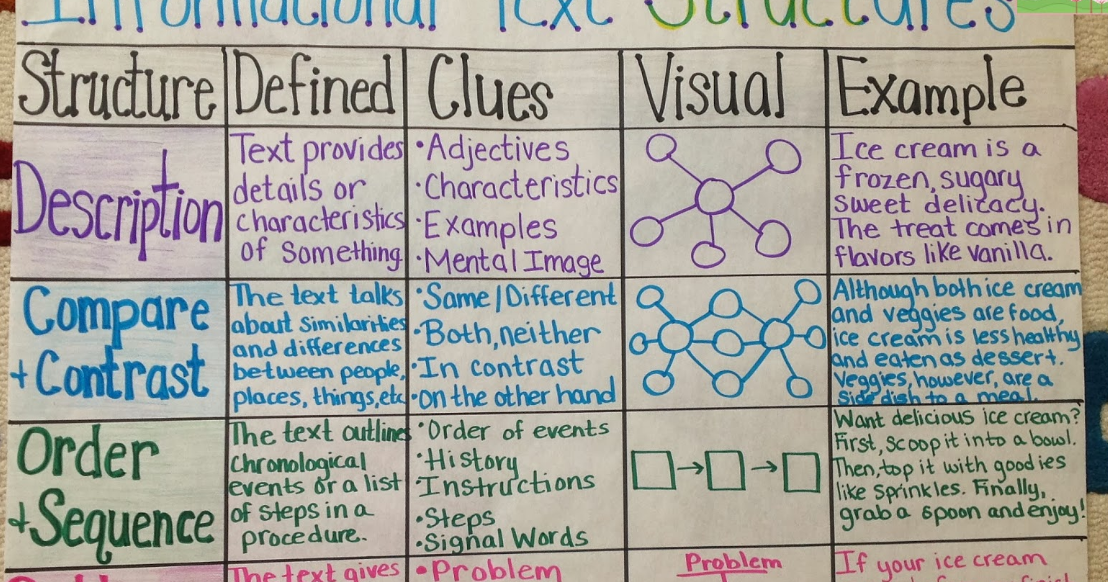 Informational Text Structures
Structure
Defined
Clues
Visual
Example
Description
Text provides
details or
characteristics
of Something
•Adjectives
•Characteristics
•Examples
•Mental Image
Ice cream is a
frozen, sugary
sweet delicacy.
The treat comes in
flavors like vanilla.
Compare
+Contrast
The text talks
about similarities
and differences
between people,
places, things, etc
•Same/Different
•Both, neither
•In contrast
•on the other hand
Although both ice cream
and veggies are food,
ice cream is less healthy
and eaten as dessert.
Veggies, however, are a
side dish to a meal.
Order
+Sequence
The text outlines
Chronological
events or a list
of steps in a
procedure.
•Order of events
•History
•Instructions
•Steps
•Signal Words
Want delicious ice cream?
First, scoop it into a bowl.
Then, top it with goodies
like sprinkles. Finally,
grab a spoon and enjoy!
The text gives
•Problem
Problem
If your ice cream